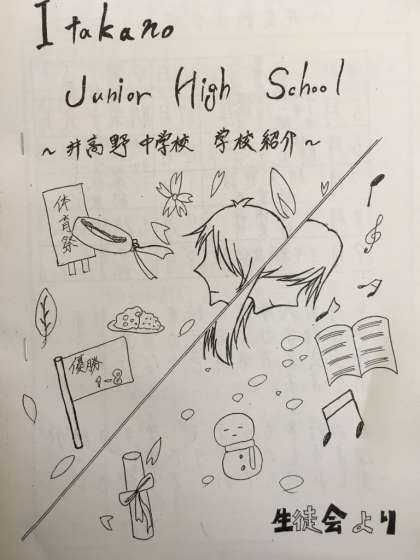 Itakano
Junior High School
～井高野中学校 学校紹介～
体育祭
優勝
1-8
生徒会より